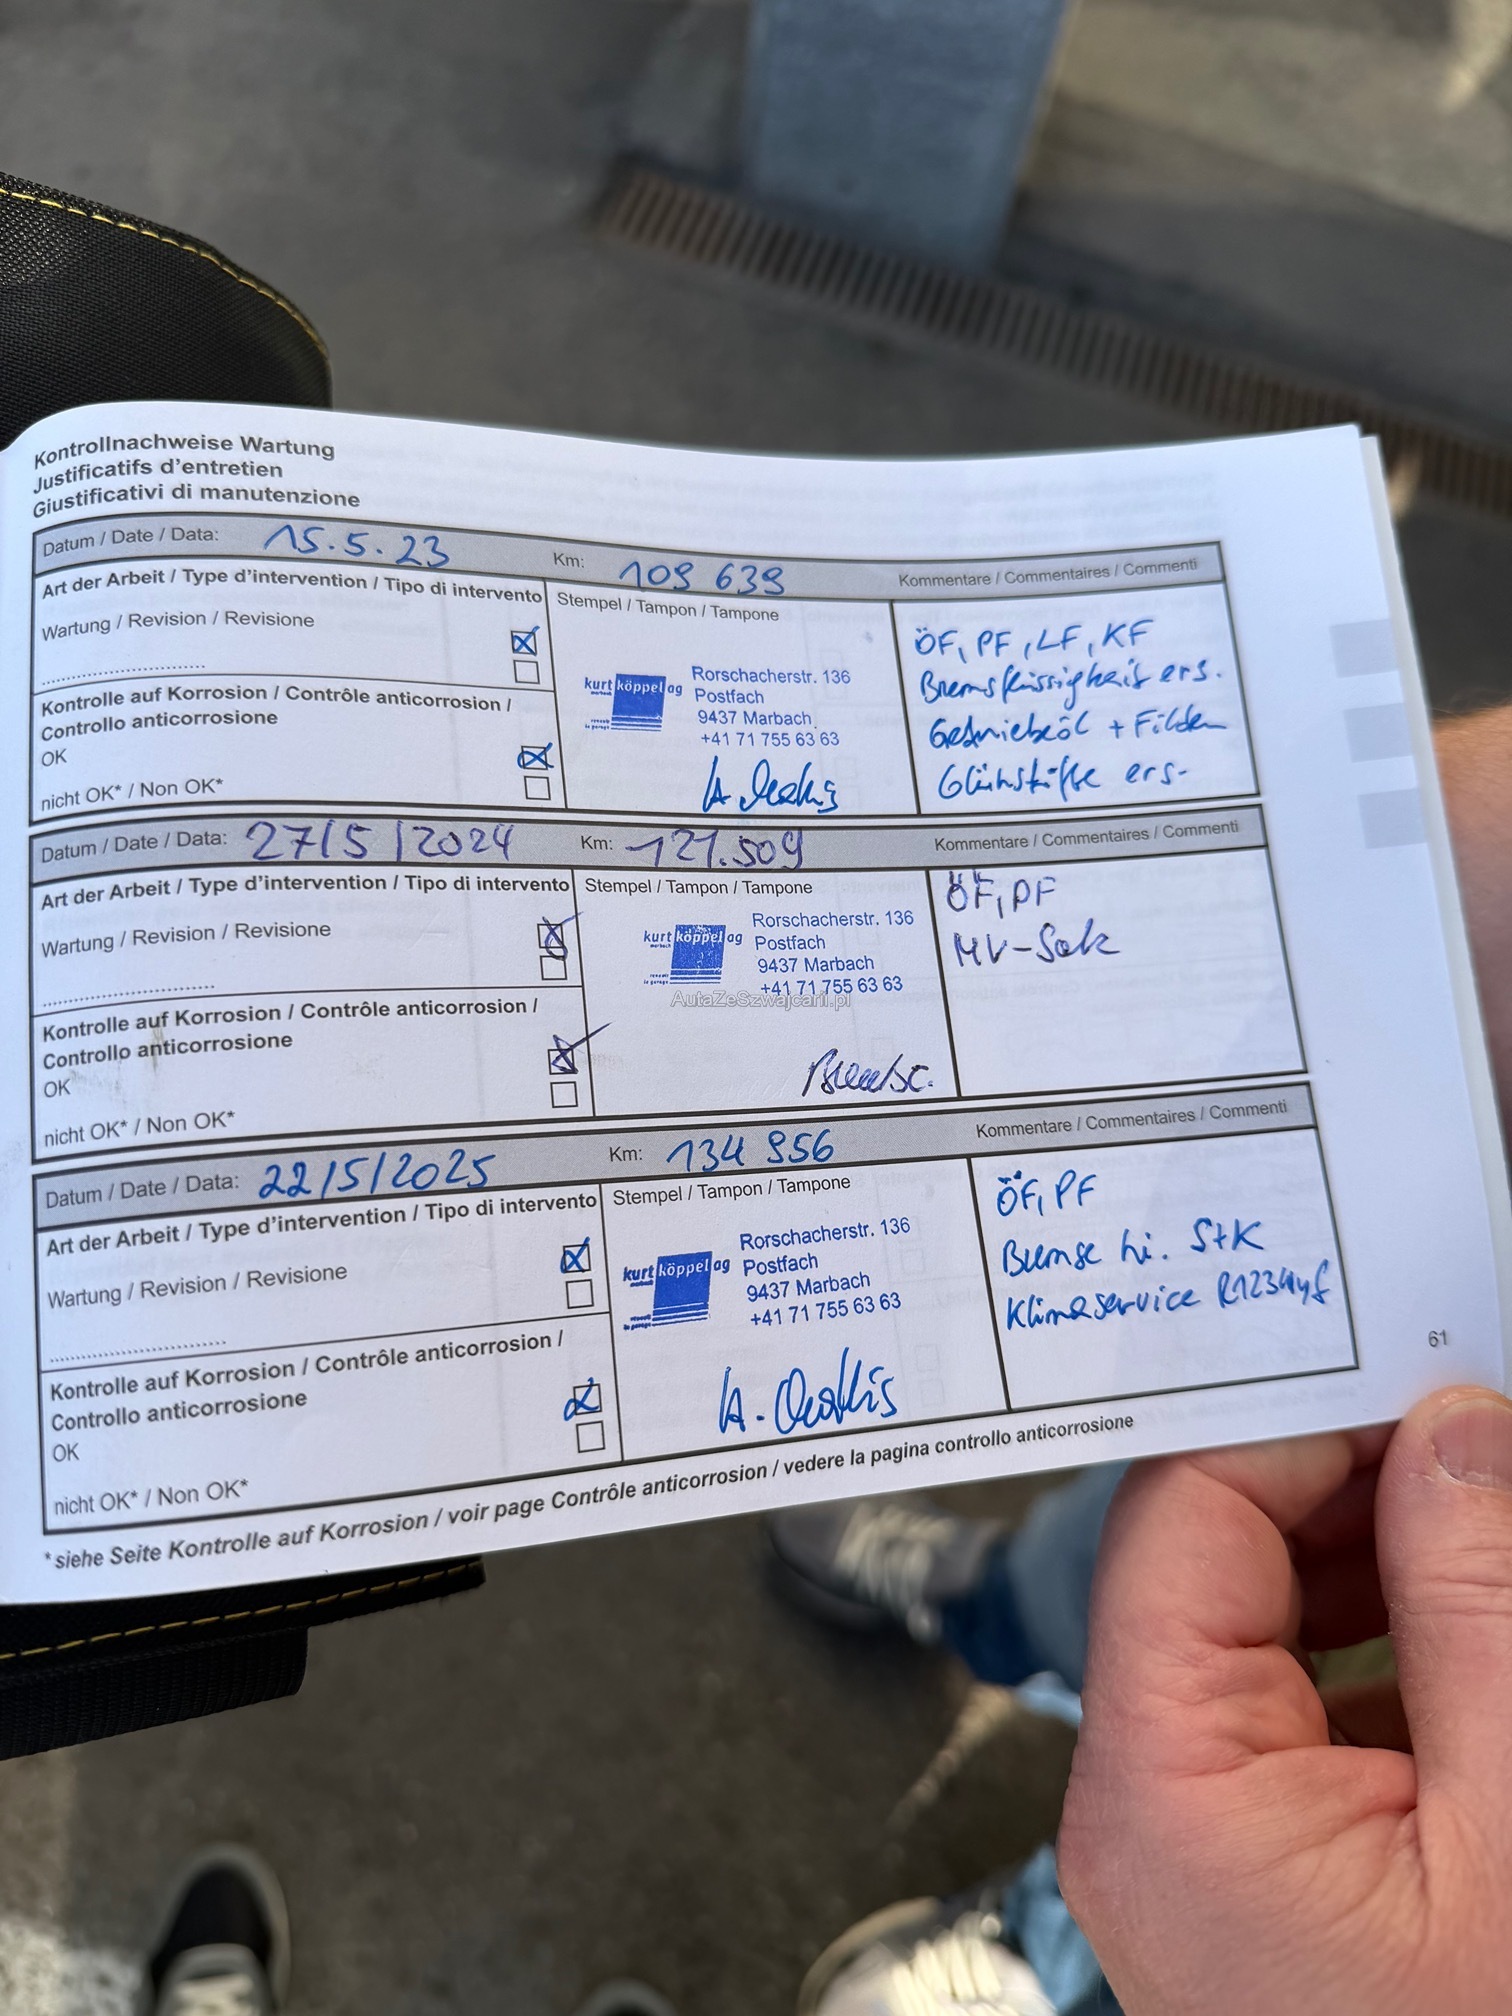 Kontrollnachweise Wartung
Justificatifs d'entretien
Giustificativi di manutenzione
Datum / Date / Data: 15.5.23 Km: 109 639 Kommentare / Commentaires / Commenti
Art der Arbeit / Type d'intervention / Tipo di intervento
Stempel / Tampon / Tampone
Wartung / Revision / Revisione
Kontrolle auf Korrosion / Contrôle anticorrosion /
Controllo anticorrosione
OK
nicht OK* / Non OK*
kurt köppel ag
marbach
Rorschacherstr. 136
Postfach
9437 Marbach
+41 71 755 63 63
ÖF, PF, LF, KF
Bremsflüssigkeit ers.
Getriebeöl + Filter
Glühstifte ers.
Datum / Date / Data: 27/5/2024 Km: 121.509 Kommentare / Commentaires / Commenti
Art der Arbeit / Type d'intervention / Tipo di intervento
Stempel / Tampon / Tampone
Wartung / Revision / Revisione
Kontrolle auf Korrosion / Contrôle anticorrosion /
Controllo anticorrosione
OK
nicht OK* / Non OK*
kurt köppel ag
marbach
Rorschacherstr. 136
Postfach
9437 Marbach
+41 71 755 63 63
AutaZeSzwajcarii.pl
ÖF, PF
Datum / Date / Data: 22/5/2025 Km: 134 956 Kommentare / Commentaires / Commenti
Art der Arbeit / Type d'intervention / Tipo di intervento
Stempel / Tampon / Tampone
Wartung / Revision / Revisione
Kontrolle auf Korrosion / Contrôle anticorrosion /
Controllo anticorrosione
OK
nicht OK* / Non OK*
kurt köppel ag
Rorschacherstr. 136
Postfach
9437 Marbach
+41 71 755 63 63
ÖF, PF
Bremse hi. StK
Klimaservice R1234yf
*siehe Seite Kontrolle auf Korrosion / voir page Contrôle anticorrosion / vedere la pagina controllo anticorrosione
61